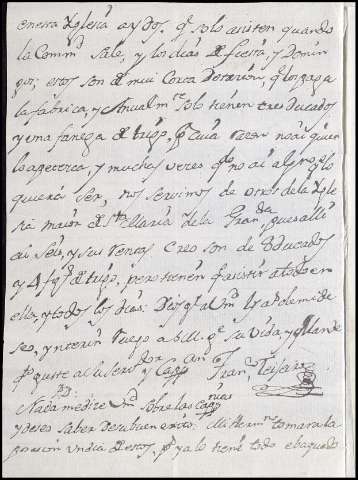 en esta Yglesia ay dos. qe solo asisten quando
la Commd sale, y los dias de fiesta, y Domin
gos; estos son de mui corta Donacion, qe los paga
la fabrica, y Anualmte solo tienen tres Ducados
y una fanega de trigo, pr cuia razon no ai quien
lo apetezca, y muchas veces qdo no ai alguno qe lo
quiera ser, nos servimos de otros de la Ygle
sia maior de Sta Maria de la Granda, pues alli
ai seis, y sus rentas creo son de 8 Ducados
y 4 fgs de trigo, pero tienen qe asistir a todo en
ella, y todos los dias: Dios gue a Vm
seo, y interin ruego a su vida, y Mande
qto guste a su servor y Capp Fran. Teijaro
PD.
Nada me dice Vm sobre las Capnias
y deseo saber de su buen exito. Mi Hermno tomara la
posesion un dia de estos, pr ya lo tiene todo ebaquado